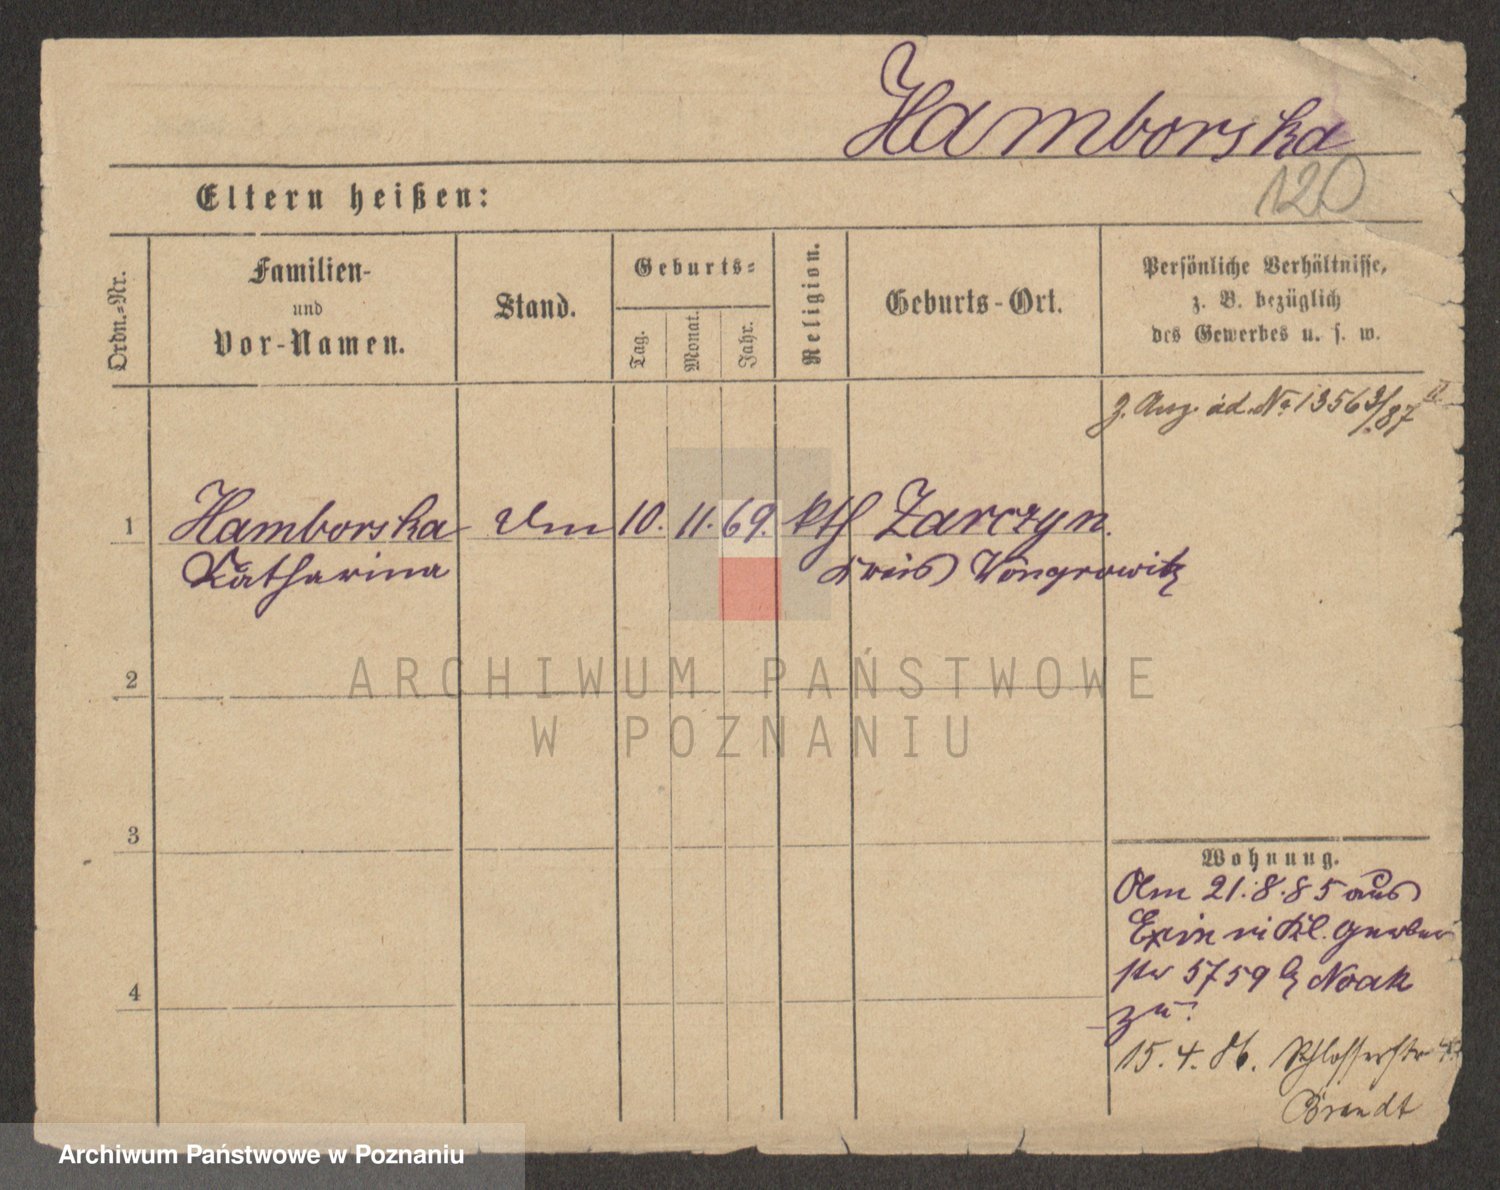 Hamborska
120
Eltern heißen:
Ordn.-Nr.
Familien-
und
Vor-Namen.
Stand.
Geburts-
Tag.
Monat.
Jahr.
Religion.
Geburts-Ort.
Persönliche Verhältnisse,
z. B. bezüglich
des Gewerbes u. s. w.
z. Anz. ad. No 13563/87
1 Hamborska 10. 11. 69. kth Zarczyn.
Katharina Kreis Wongrowitz
2
ARCHIWUM PAŃSTWOWE
W POZNANIU
3
Wohnung.
Am 21.8.85 aus
Exin in Kl. Gerber
str 5759 b Noak
zu.
4
15. 4. 86. Schlosserstr
Brandt
Archiwum Państwowe w Poznaniu